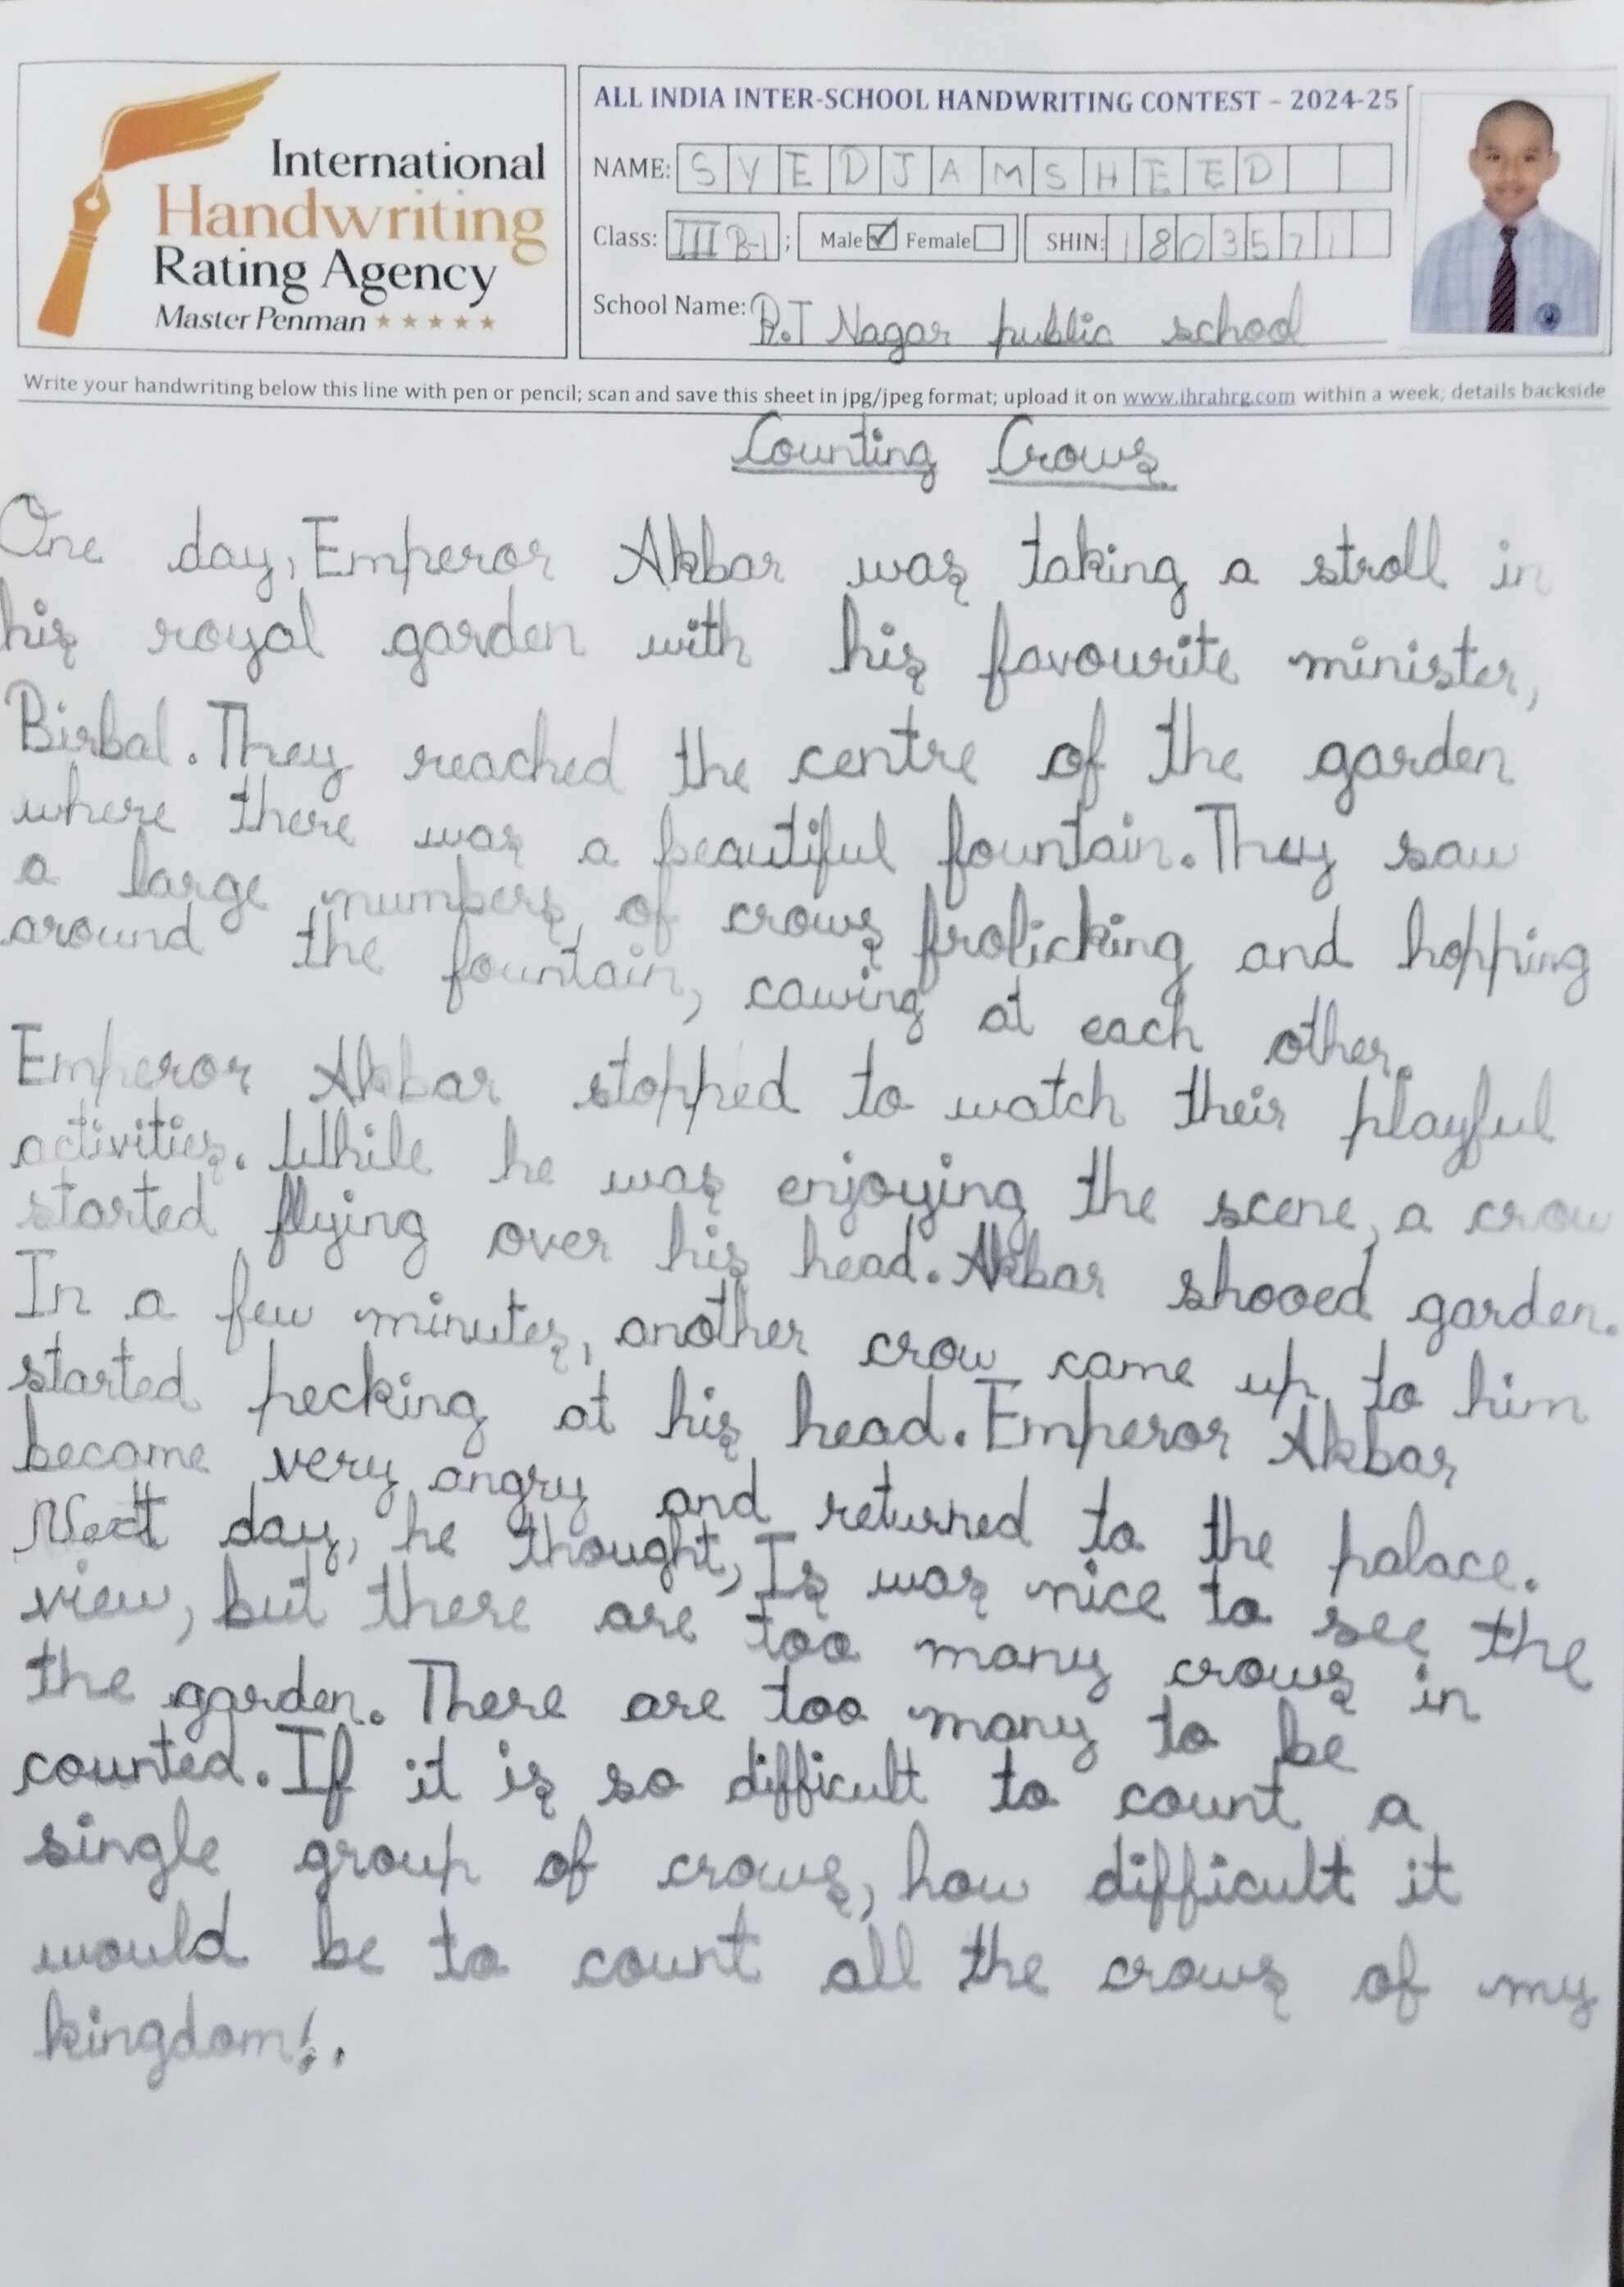 International
Handwriting
Rating Agency
Master Penman
ALL INDIA INTER-SCHOOL HANDWRITING CONTEST – 2024-25
NAME: SYED JAMSHEED
Class: III B-1; Male ✓ Female SHIN: 1803571
School Name: R.T Nagar public school
Write your handwriting below this line with pen or pencil; scan and save this sheet in jpg/jpeg format; upload it on www.ihrahrg.com within a week; details backside
Counting Crows
One day, Emperor Akbar was taking a stroll in
his royal garden with his favourite minister,
Birbal. They reached the centre of the garden
where there was a beautiful fountain. They saw
a large numbers of crows frolicking and hopping
around the fountain, cawing at each other.
Emperor Akbar stopped to watch their playful
activities. While he was enjoying the scene, a crow
started flying over his head. Akbar shooed garden.
In a few minutes, another crow came up to him
started pecking at his head. Emperor Akbar
became very angry and returned to the palace.
Next day, he thought, Is was nice to see the
view, but there are too many crows in
the garden. There are too many to be
counted. If it is so difficult to count a
single group of crows, how difficult it
would be to count all the crows of my
kingdom!.